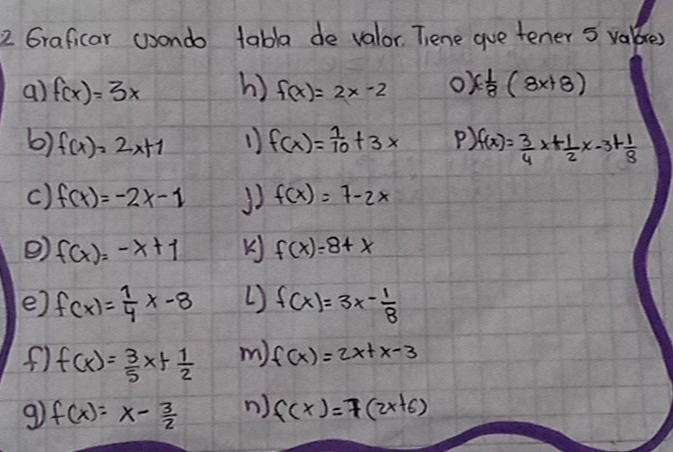 2 Graficar usando tabla de valor. Tiene que tener 5 valores
a) f(x)= 3x
b) f(x)= 2x+1
c) f(x)= -2x-1
D) f(x)= -x+1
e) f(x)= 1/4 x -8
f) f(x)= 3/5 x+ 1/2
g) f(x)= x- 3/2
h) f(x)= 2x-2
i) f(x)= 1/10 +3x
j) f(x) = 7-2x
K) f(x)=8+ x
L) f(x)= 3x- 1/8
m) f(x)= 2x+x-3
n) f(x)=7(2x+6)
1/8 (8x+8)
P) f(x)= 3/4 x+ 1/2 x-3+ 1/8